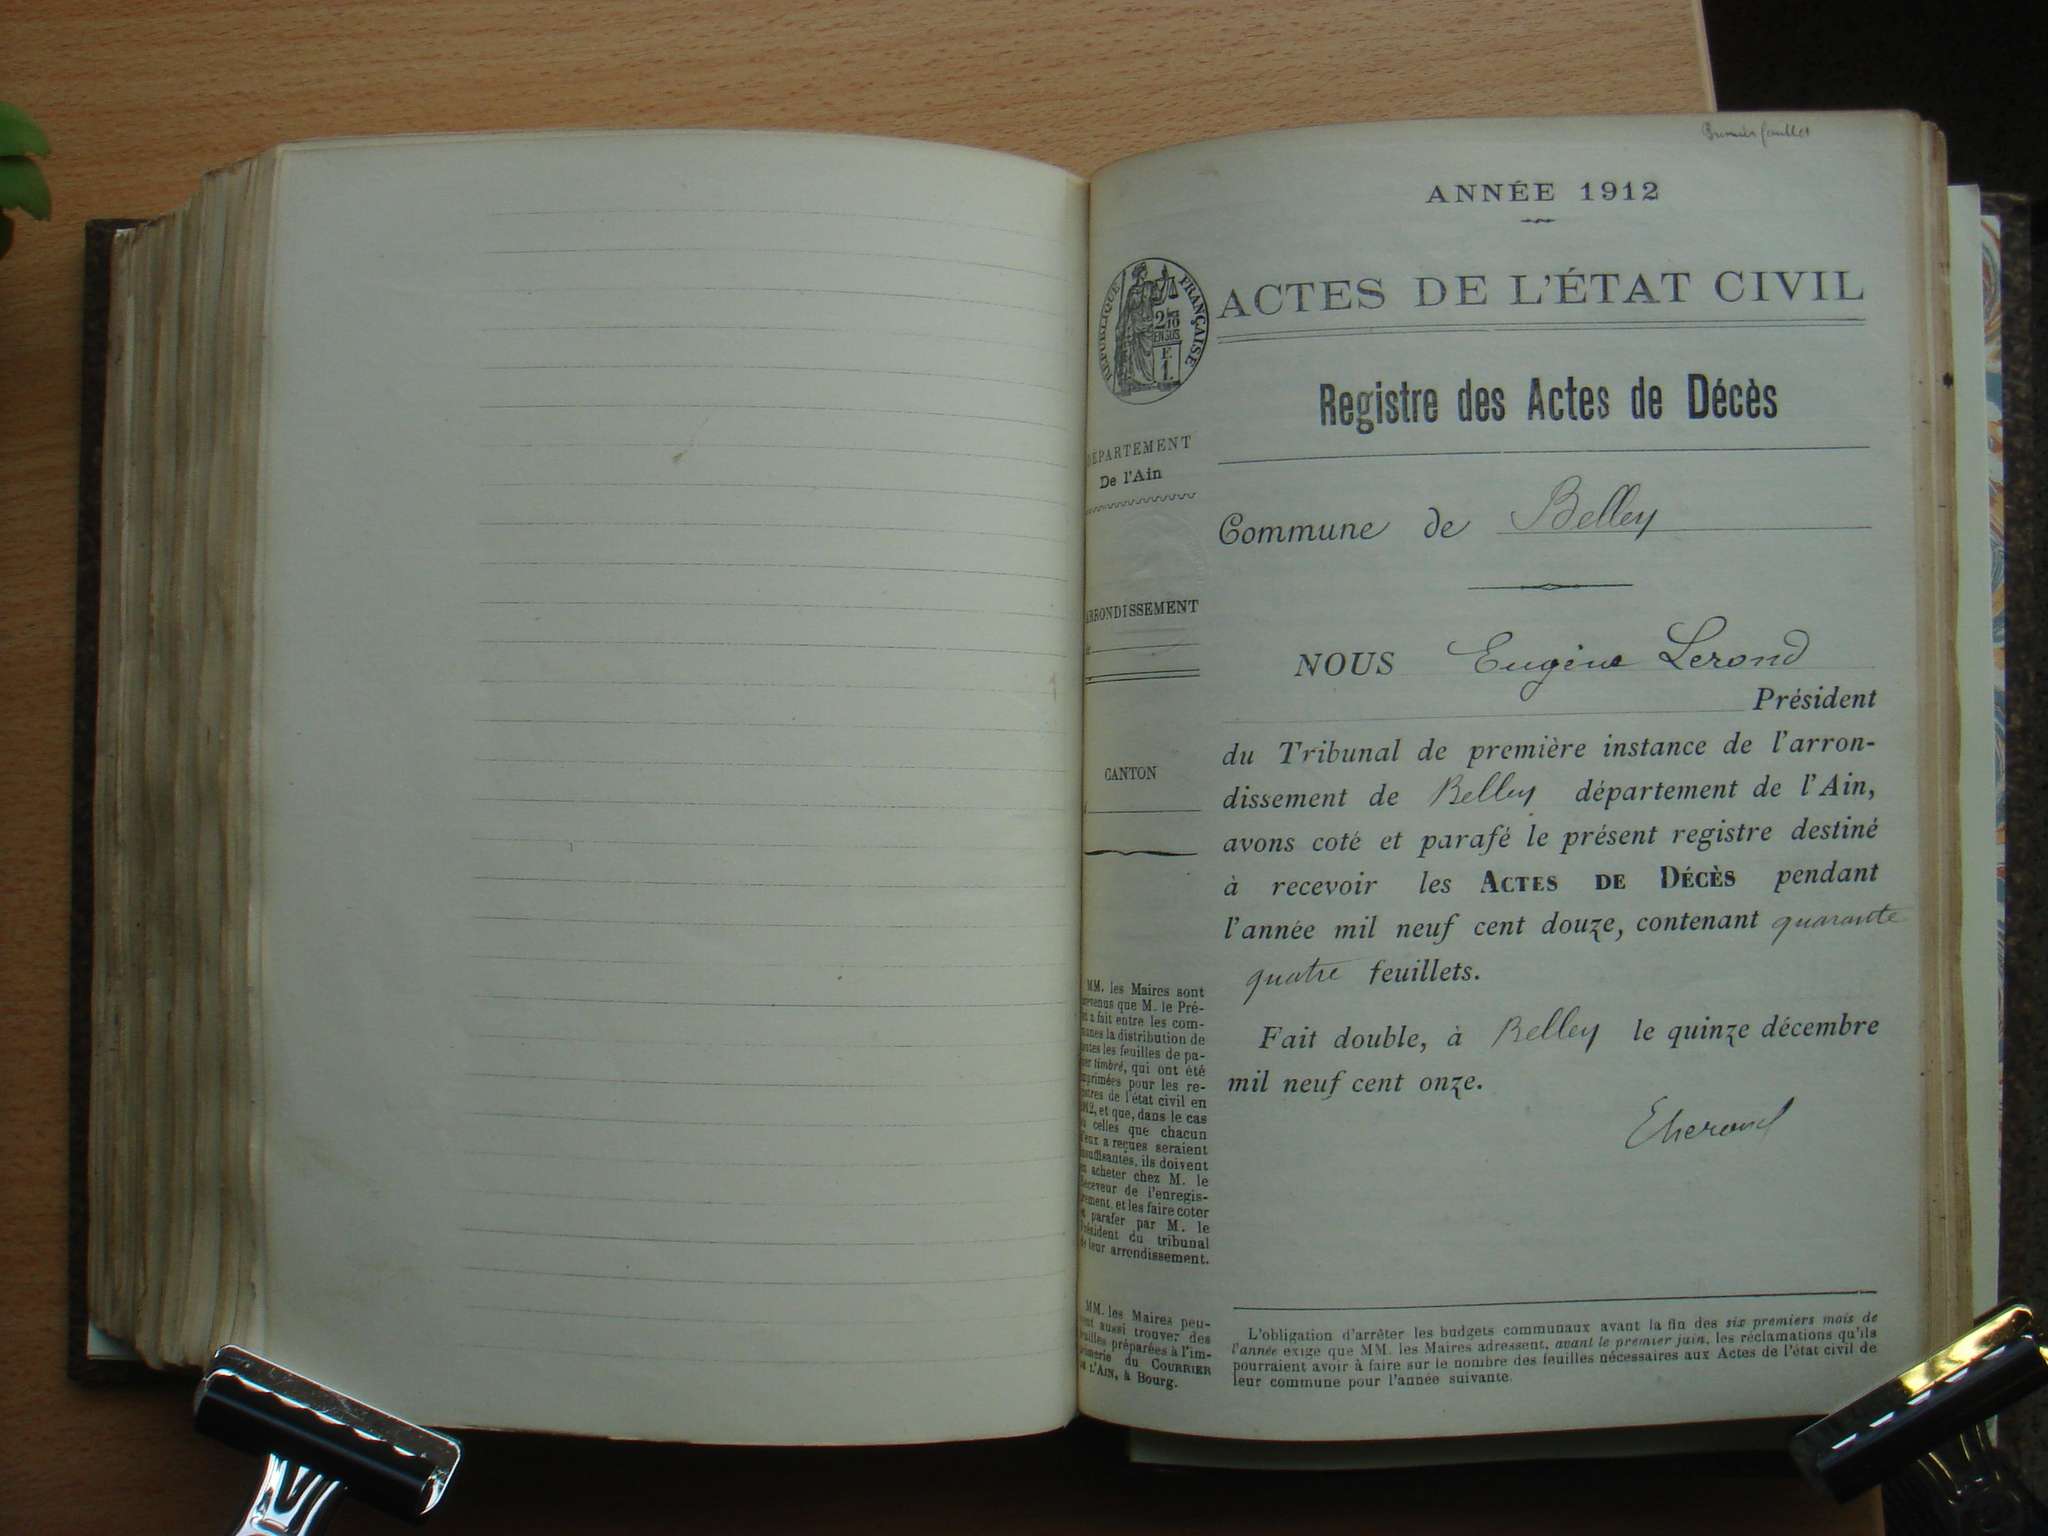 Premier feuillet
ANNÉE 1912
RÉPUBLIQUE FRANÇAISE
2/10
EN SUS
F.
1.
ACTES DE L'ÉTAT CIVIL
Registre des Actes de Décès
DÉPARTEMENT
De l'Ain
Commune de Belley
ARRONDISSEMENT
CANTON
NOUS Eugène Lerond
Président
du Tribunal de première instance de l'arron-
dissement de Belley département de l'Ain,
avons coté et parafé le présent registre destiné
à recevoir les ACTES DE DÉCÈS pendant
l'année mil neuf cent douze, contenant quarante
quatre feuillets.
Fait double, à Belley le quinze décembre
mil neuf cent onze.
MM. les Maires sont
prévenus que M. le Pré-
fet a fait entre les com-
munes la distribution de
toutes les feuilles de pa-
pier timbré, qui ont été
imprimées pour les re-
gistres de l'état civil en
1912, et que, dans le cas
où celles que chacun
d'eux a reçues seraient
insuffisantes, ils doivent
en acheter chez M. le
Receveur de l'enregis-
trement, et les faire coter
et parafer par M. le
Président du tribunal
de leur arrondissement.
MM. les Maires peu-
vent aussi trouver des
feuilles préparées à l'im-
primerie du COURRIER
DE L'AIN, à Bourg.
L'obligation d'arrêter les budgets communaux avant la fin des six premiers mois de
l'année exige que MM. les Maires adressent, avant le premier juin, les réclamations qu'ils
pourraient avoir à faire sur le nombre des feuilles nécessaires aux Actes de l'état civil de
leur commune pour l'année suivante.